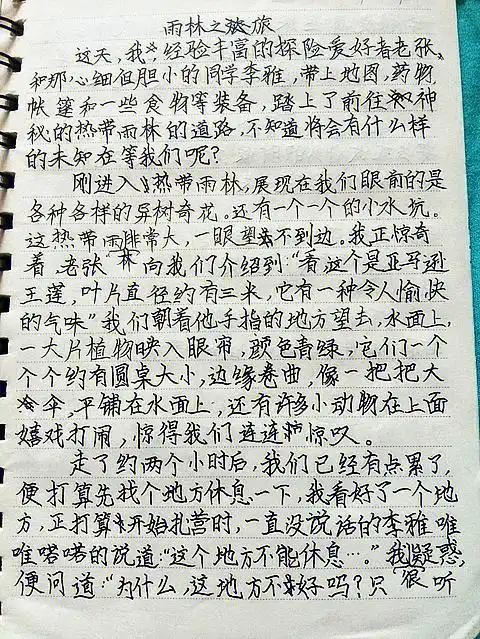 雨林之旅
这天,我,经验丰富的探险爱好者老张、
和那心细但胆小的同学李雅,带上地图,药物
帐篷和一些食物等装备,踏上了前往神
秘的热带雨林的道路,不知道将会有什么样
的未知在等我们呢?
刚进入热带雨林,展现在我们眼前的是
各种各样的异树奇花。还有一个一个的小水坑。
这热带雨林非常大,一眼望不到边。我正惊奇
着,老张向我们介绍到:“看这个是亚马逊
王莲,叶片直径约有三米,它有一种令人愉快
的气味”我们朝着他手指的地方望去,水面上,
一大片植物映入眼帘,颜色青绿,它们一个
个个约有圆桌大小,边缘卷曲,像一把把大
伞,平铺在水面上,还有许多小动物在上面
嬉戏打闹,惊得我们连连惊叹。
走了约两个小时后,我们已经有点累了,
便打算先找个地方休息一下,我看好了一个地
方,正打算开始扎营时,一直没说话的李雅唯
唯喏喏的说道:“这个地方不能休息…。”我疑惑,
便问道:“为什么,这地方不好吗?只很听